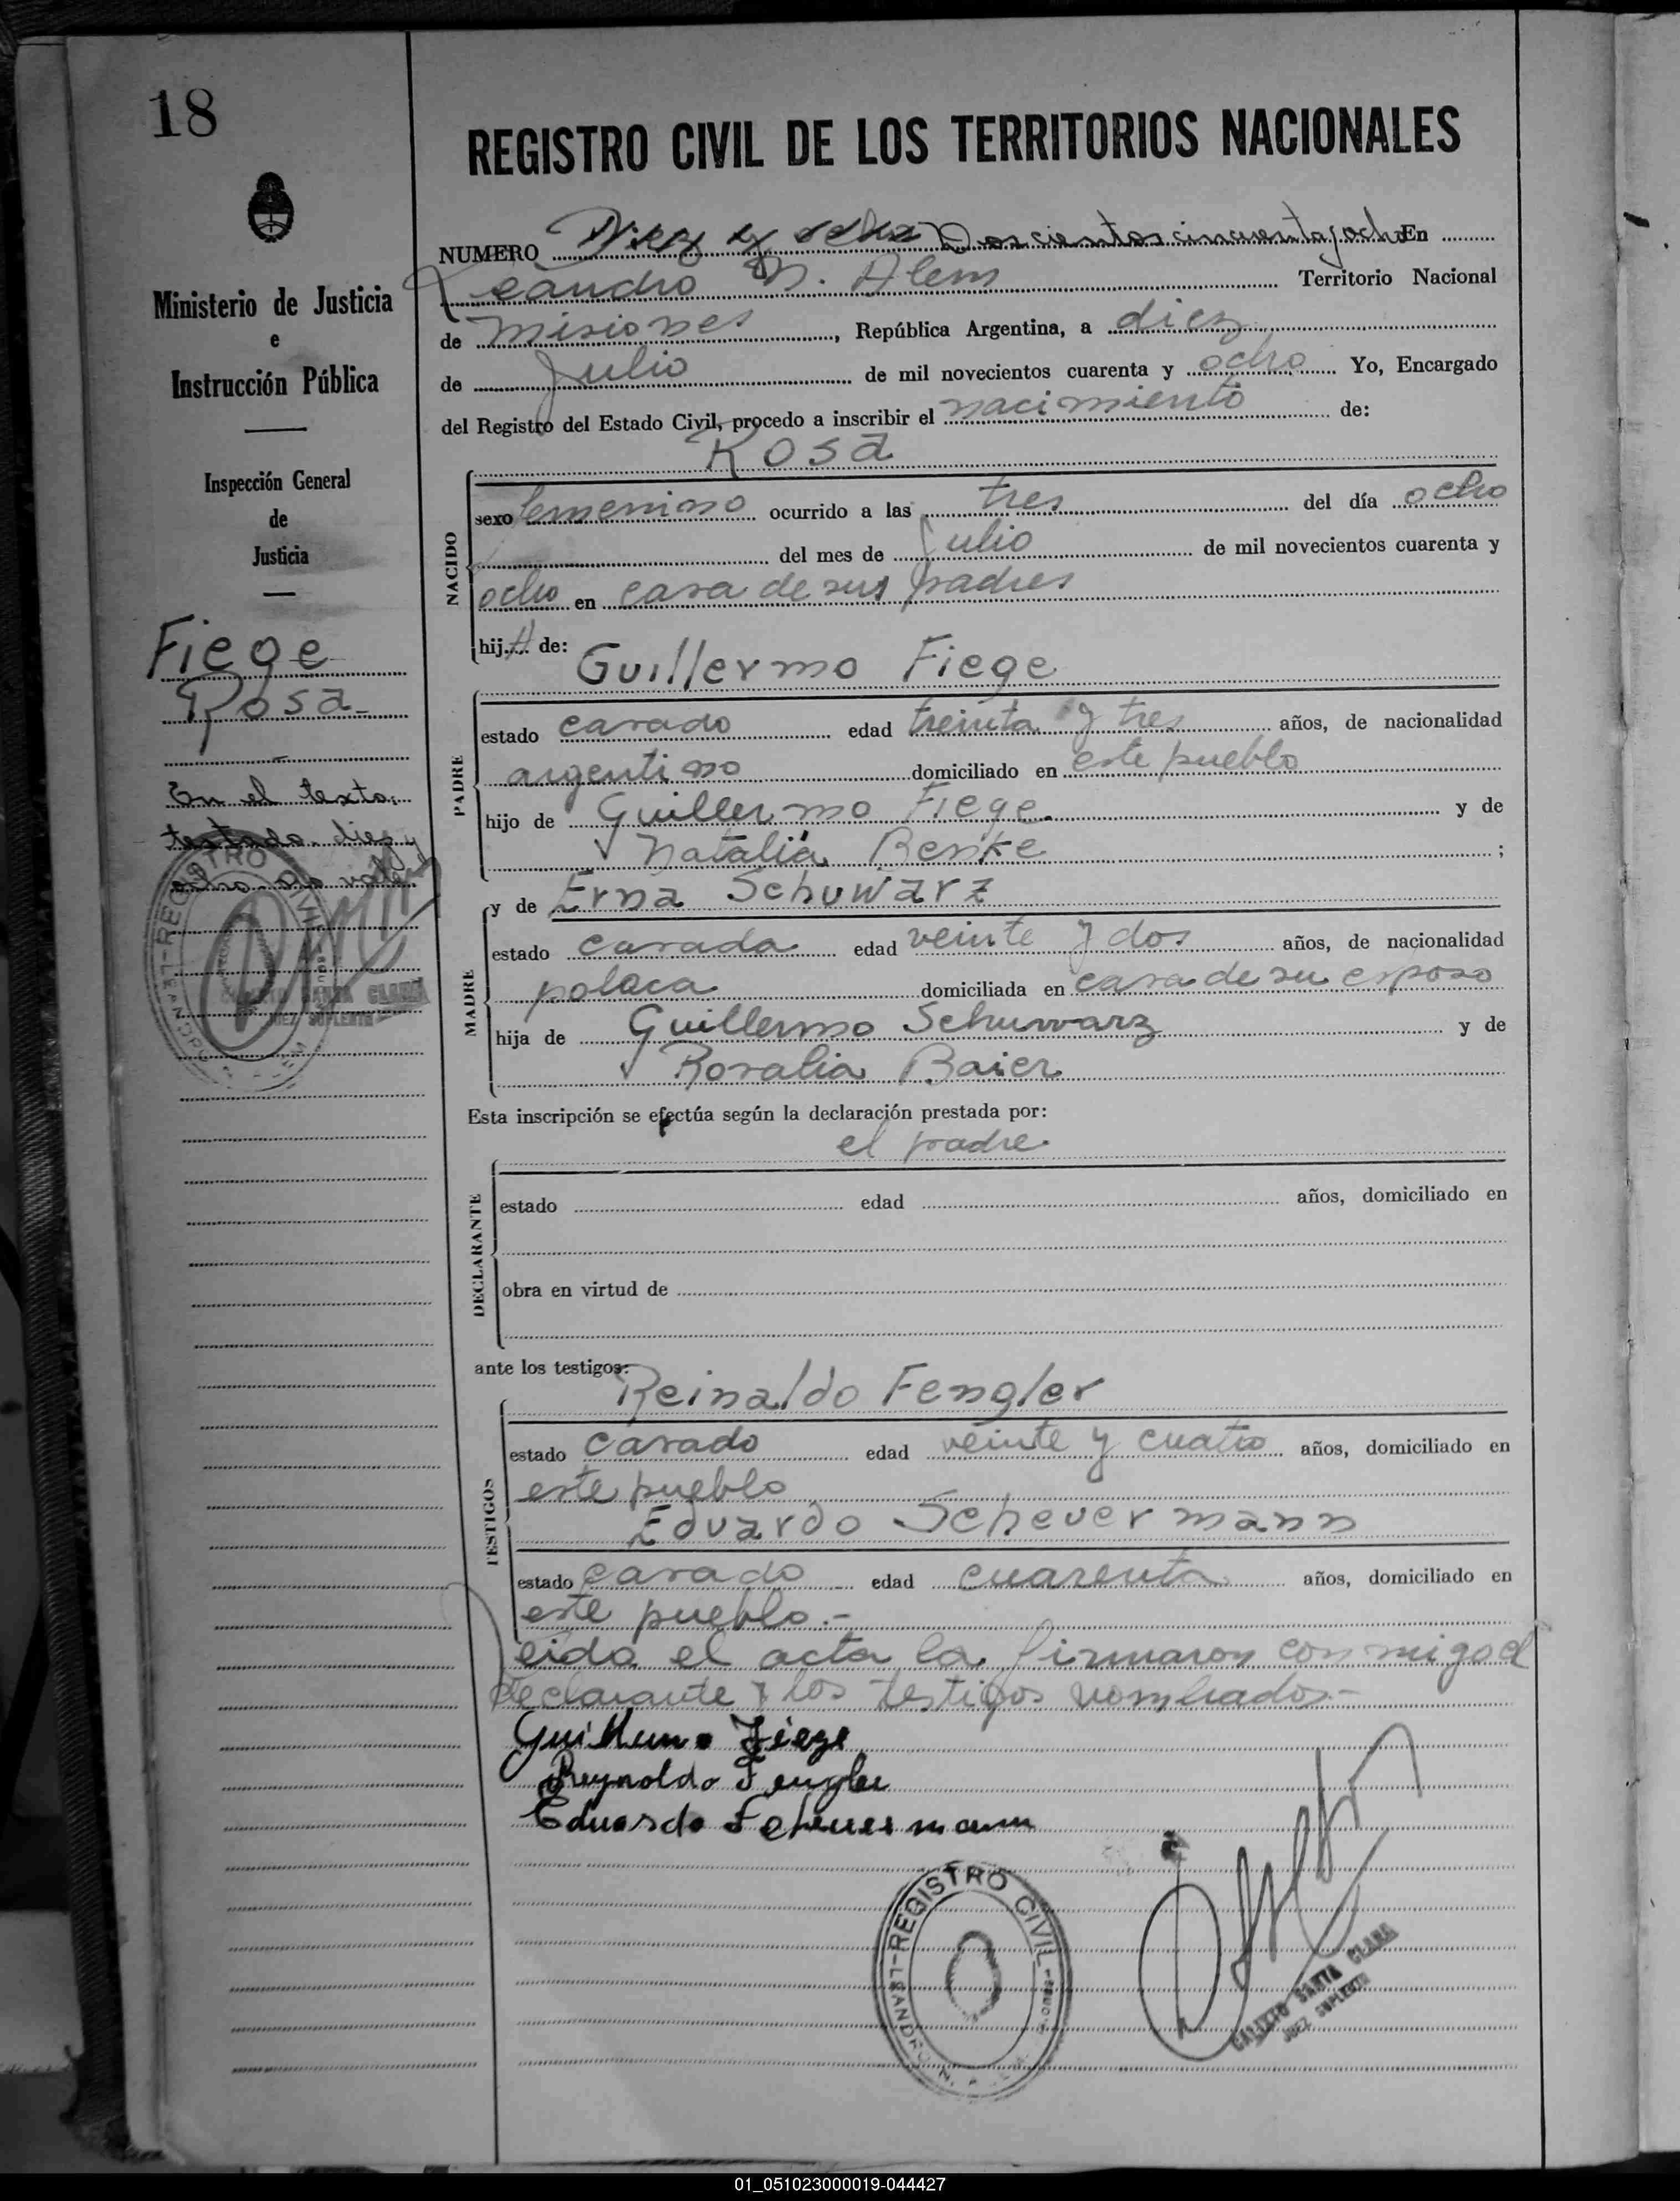 18
REGISTRO CIVIL DE LOS TERRITORIOS NACIONALES
Ministerio de Justicia
e
Instrucción Pública
Inspección General
de
Justicia
Fiege
Rosa
En el texto:
testado. diez y
ocho no vale
NUMERO Diez y ocho Doscientos cincuenta y ocho En
Leandro N. Alem Territorio Nacional
de Misiones, República Argentina, a diez
de Julio de mil novecientos cuarenta y ocho Yo, Encargado
del Registro del Estado Civil, procedo a inscribir el nacimiento de:
Rosa
NACIDO
sexo femenino ocurrido a las tres del día ocho
del mes de Julio de mil novecientos cuarenta y
ocho en casa de sus padres
hija de:
Guillermo Fiege
PADRE
estado casado edad treinta y tres años, de nacionalidad
argentino domiciliado en este pueblo
hijo de Guillermo Fiege. y de
Natalia Renke ;
y de Erna Schuwarz
MADRE
estado casada edad veinte y dos años, de nacionalidad
polaca domiciliada en casa de su esposo
hija de Guillermo Schuwarz y de
Rosalia Baier
Esta inscripción se efectúa según la declaración prestada por:
el padre
DECLARANTE
estado edad años, domiciliado en
obra en virtud de
ante los testigos:
Reinaldo Fengler
TESTIGOS
estado casado edad veinte y cuatro años, domiciliado en
este pueblo
Eduardo Scheuermann
estado casado edad cuarenta años, domiciliado en
este pueblo.-
Leida el acta la firmaron conmigo el
declarante y los testigos nombrados.-
Guillermo Fiege
Reynoldo Fengler
Eduardo Scheuermann
REGISTRO CIVIL
LEANDRO N. ALEM
SANTA CLARA
JUEZ SUPLENTE
01_051023000019-044427